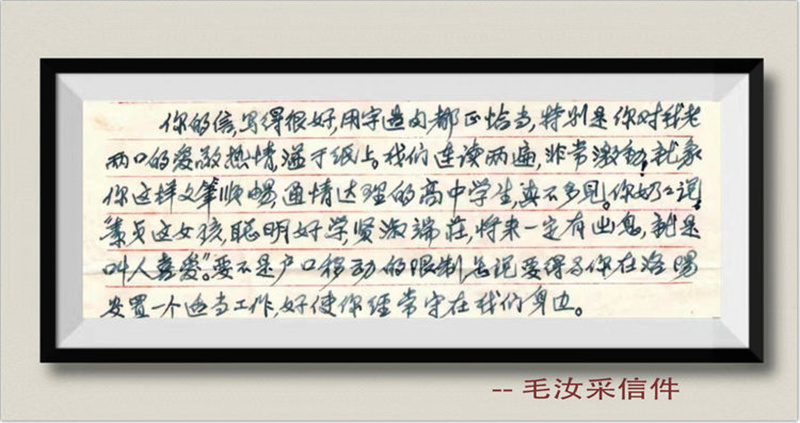 你的信,写得很好,用字造句都正恰当,特别是你对我老
两口的爱敬热情,溢于纸上。我们连读两遍,非常激动,就象
你这样文笔顺畅,通情达理的高中学生,真不多见。你奶奶说
"素贞这女孩,聪明好学,贤淑端莊,将来一定有出息,就是
叫人喜爱"。要不是户口移动的限制,总说要得了你在洛阳
安置一个适当工作,好使你经常守在我们身边。
-- 毛汝采信件